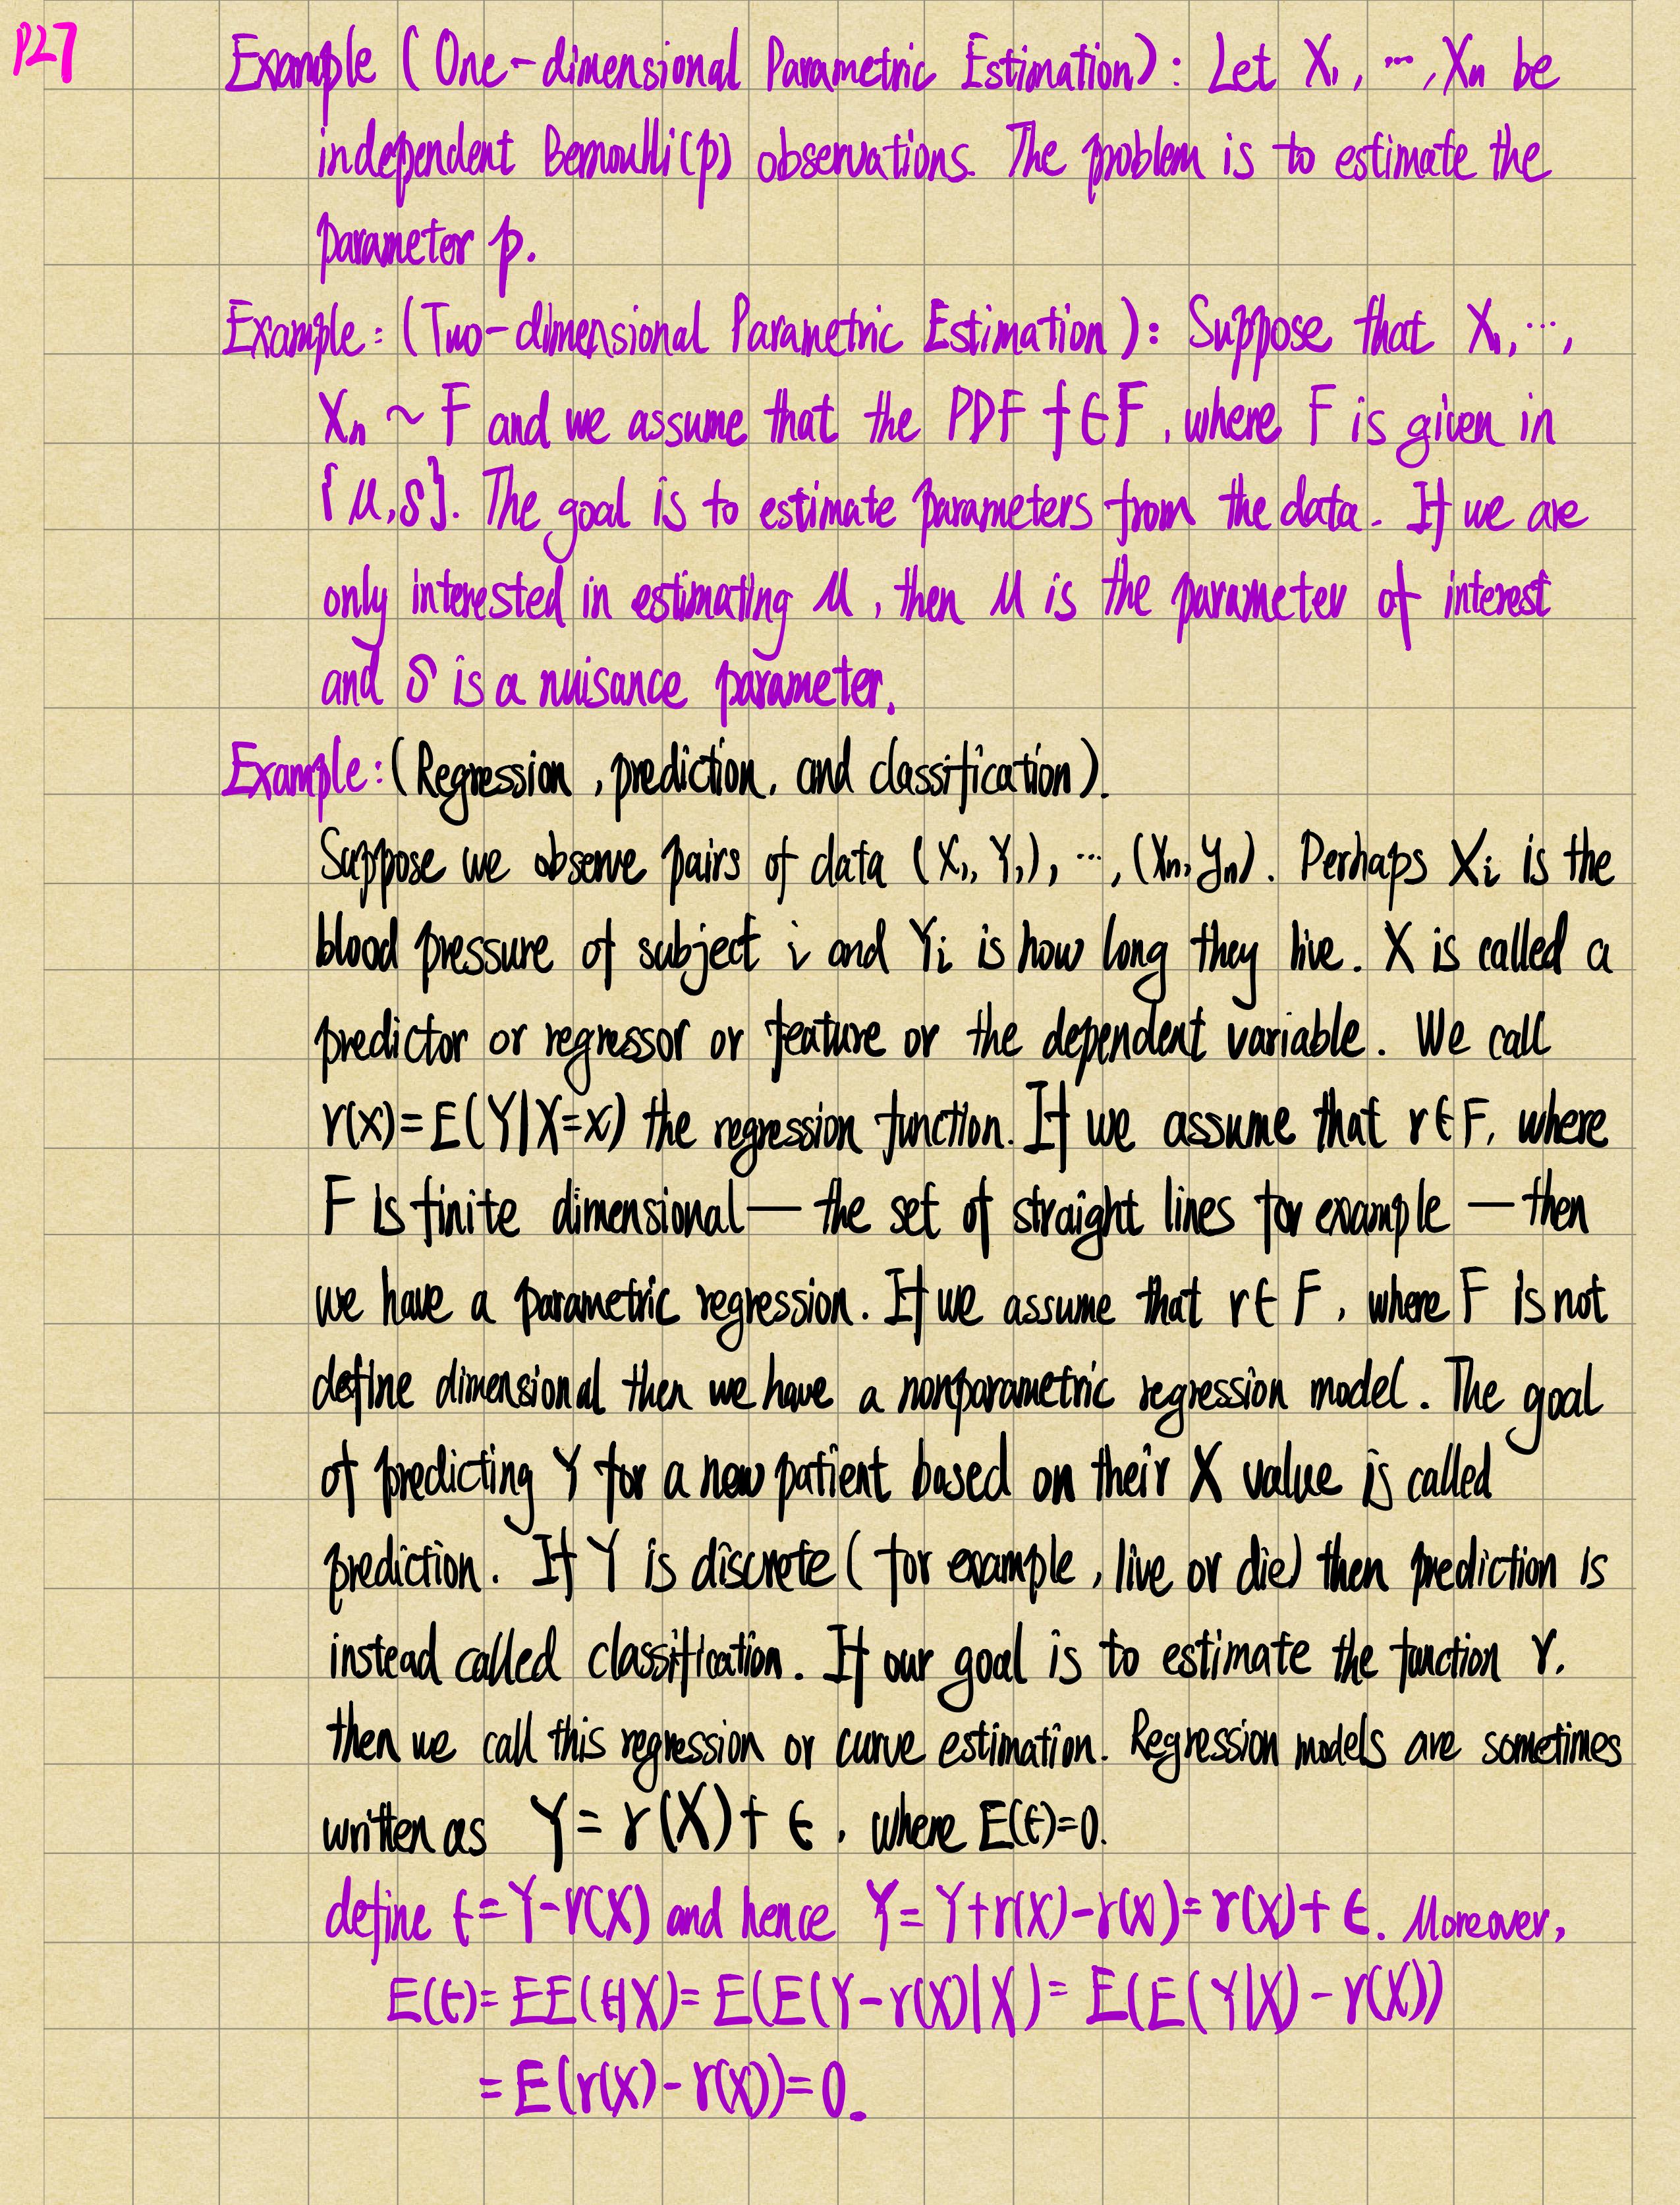 P27
Example (One-dimensional Parametric Estimation): Let X₁, ⋯, Xₙ be
independent Bernoulli(p) observations. The problem is to estimate the
parameter p.
Example: (Two-dimensional Parametric Estimation): Suppose that X₁, ⋯,
Xₙ ~ F and we assume that the PDF f∈F, where F is given in
{μ,δ}. The goal is to estimate parameters from the data. If we are
only interested in estimating μ, then μ is the parameter of interest
and δ is a nuisance parameter.
Example: (Regression, prediction, and classification).
Suppose we observe pairs of data (X₁, Y₁), ⋯, (Xₙ, yₙ). Perhaps Xi is the
blood pressure of subject i and Yi is how long they live. X is called a
predictor or regressor or feature or the dependent variable. We call
r(x)=E(Y|X=x) the regression function. If we assume that r∈F, where
F is finite dimensional — the set of straight lines for example — then
we have a parametric regression. If we assume that r∈F, where F is not
define dimensional then we have a nonparametric regression model. The goal
of predicting Y for a new patient based on their X value is called
prediction. If Y is discrete (for example, live or die) then prediction is
instead called classification. If our goal is to estimate the function r,
then we call this regression or curve estimation. Regression models are sometimes
written as Y = r(X) + ϵ, where E(ϵ)=0.
define ϵ=Y-r(X) and hence Y=Y+r(X)-r(X)=r(X)+ϵ. Moreover,
E(ϵ)=EE(ϵ|X)=E(E(Y-r(X)|X)=E(E(Y|X)-r(X))
=E(r(X)-r(X))=0.